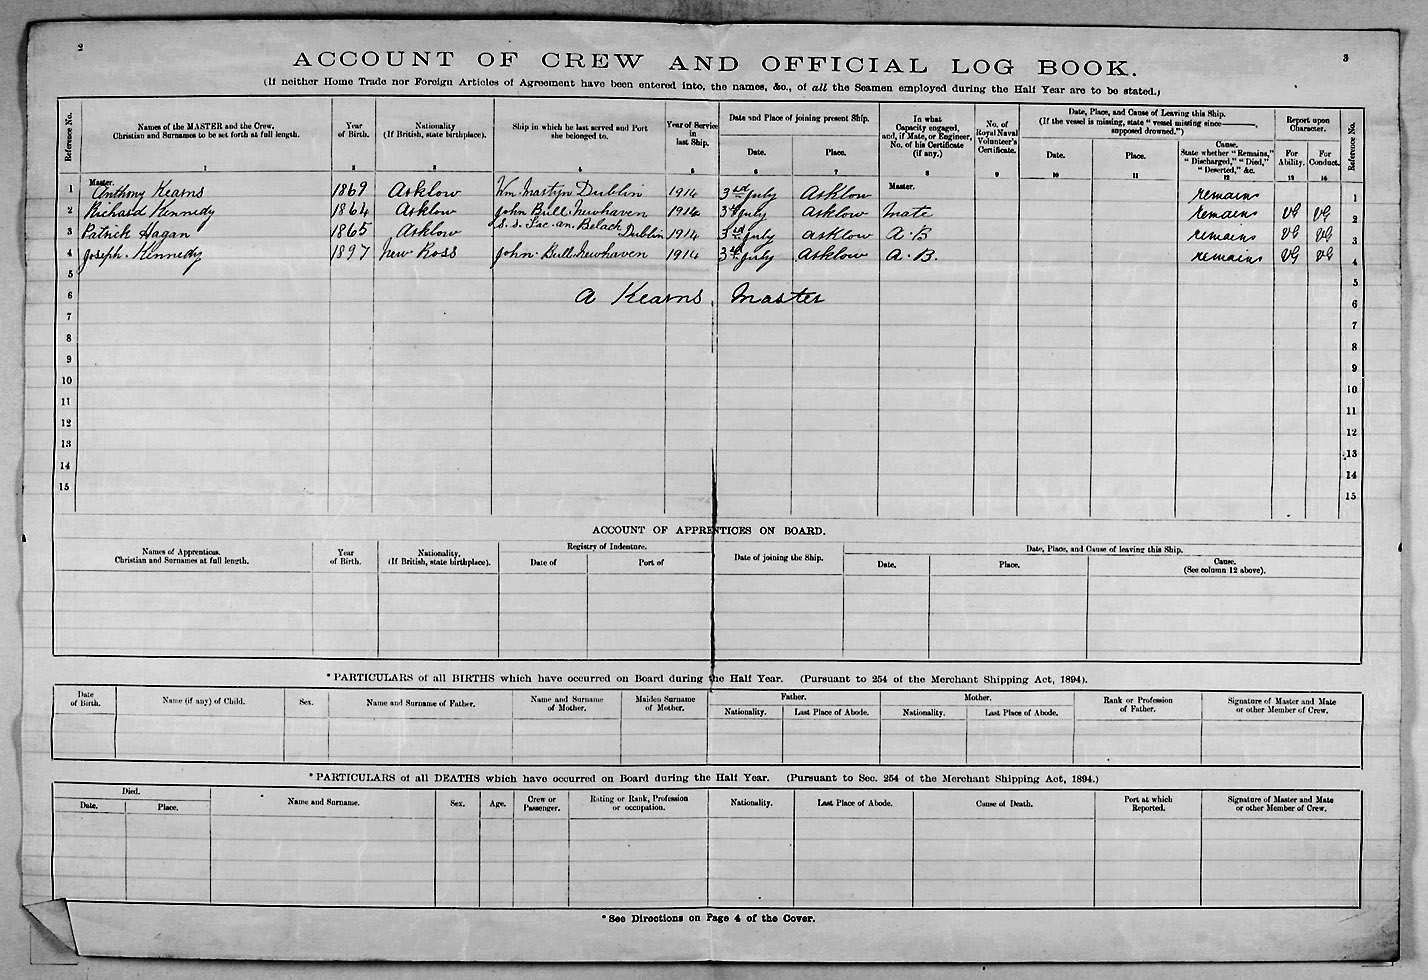 2
3
ACCOUNT OF CREW AND OFFICIAL LOG BOOK.
(If neither Home Trade nor Foreign Articles of Agreement have been entered into, the names, &c., of all the Seamen employed during the Half Year are to be stated.)
Reference No. Names of the MASTER and the Crew. Christian and Surnames to be set forth at full length. Year of Birth. Nationality (If British, state birthplace). Ship in which he last served and Port she belonged to. Year of Service in last Ship. Date and Place of joining present Ship. Date. Place. In what Capacity engaged, and, if Mate, or Engineer, No. of his Certificate (if any.) No. of Royal Naval Volunteer's Certificate. Date, Place, and Cause of Leaving this Ship. (If the vessel is missing, state "vessel missing since ———, supposed drowned.") Date. Place. Cause. State whether "Remains," "Discharged," "Died," "Deserted," &c. Report upon Character. For Ability. For Conduct. Reference No.
1 2 3 4 5 6 7 8 9 10 11 12 13 14
1 Master. Anthony Kearns 1869 Arklow Wm Martyn Dublin 1914 3rd July Arklow Master. remains 1
2 Richard Kennedy 1864 Arklow John Bull. Newhaven 1914 3rd July Arklow Mate remains VG VG 2
3 Patrick Hagan 1865 Arklow S.S. Dublin 1914 3rd July Arklow A.B remains VG VG 3
4 Joseph Kennedy 1897 New Ross John Bull. Newhaven 1914 3rd July Arklow A.B. remains VG VG 4
5 5
6 A Kearns, Master 6
7 7
8 8
9 9
10 10
11 11
12 12
13 13
14 14
15 15
ACCOUNT OF APPRENTICES ON BOARD.
Names of Apprentices. Christian and Surnames at full length. Year of Birth. Nationality. (If British, state birthplace). Registry of Indenture. Date of Port of Date of joining the Ship. Date, Place, and Cause of leaving this Ship. Date. Place. Cause. (See column 12 above).
*PARTICULARS of all BIRTHS which have occurred on Board during the Half Year. (Pursuant to 254 of the Merchant Shipping Act, 1894).
Date of Birth. Name (if any) of Child. Sex. Name and Surname of Father. Name and Surname of Mother. Maiden Surname of Mother. Father. Nationality. Last Place of Abode. Mother. Nationality. Last Place of Abode. Rank or Profession of Father. Signature of Master and Mate or other Member of Crew.
*PARTICULARS of all DEATHS which have occurred on Board during the Half Year. (Pursuant to Sec. 254 of the Merchant Shipping Act, 1894.)
Died. Date. Place. Name and Surname. Sex. Age. Crew or Passenger. Rating or Rank, Profession or occupation. Nationality. Last Place of Abode. Cause of Death. Port at which Reported. Signature of Master and Mate or other Member of Crew.
*See Directions on Page 4 of the Cover.